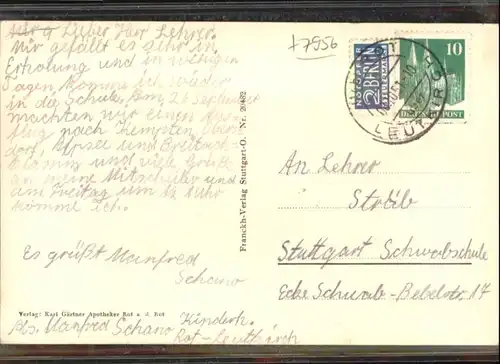 Lieber Herr Lehrer.
Mir gefällt es sehr in
Erholung und in wenigen
Tagen komme ich wieder
in die Schule. Am 26 September
machten wir einen Aus-
flug nach Kempten, Oberst-
dorf, und Breitach-
Klamm und viele Grüße
an meine Mitschüler und
am Freitag um 12 Uhr
komme ich.
Es grüßt Manfred
Schano
Verlag: Karl Gärtner Apotheker Rot a. d. Rot
Abs. Manfred Schano Kinderh.
Rot-Leutkirch
Franckh-Verlag Stuttgart-O. Nr. 20482
+7956
NOTOPFER
2 BERLIN
STEUERMARKE
10
DEUTSCHE POST
LEUTKIRCH
An Lehrer
Sträb
Stuttgart Schwabschule
Ecke Schwab-Bebelstr. 17